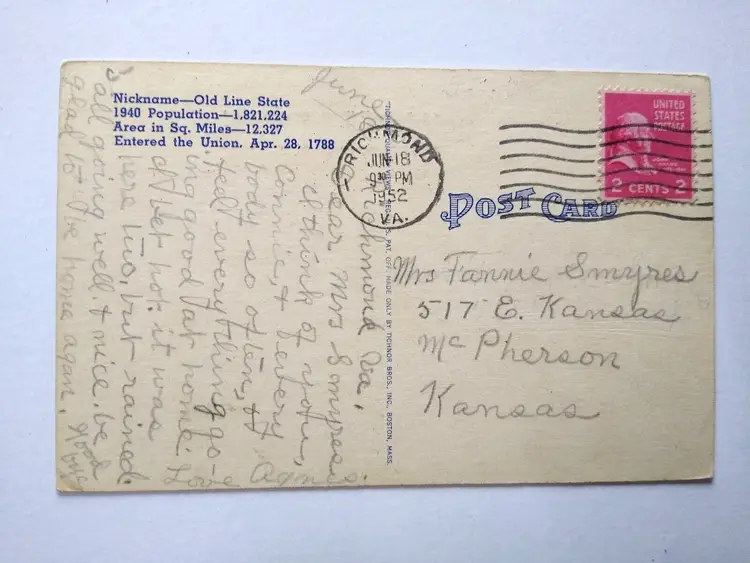 Nickname—Old Line State
1940 Population—1,821,224
Area in Sq. Miles—12,327
Entered the Union, Apr. 28, 1788
UNITED
STATES
POSTAGE
2 CENTS 2
RICHMOND
JUN 18
9 30 PM
1952
VA.
POST CARD
Mrs Fannie Smyres
517 E. Kansas
McPherson
Kansas
TICHNOR QUALITY VIEWS, REG. U. S. PAT. OFF. MADE ONLY BY TICHNOR BROS., INC., BOSTON, MASS.
June
Richmond Va,
Dear Mrs Smyres
I think of you,
Connie, & every
body so often, &
feel everything go-
ing good at home. Love
bet hot. it was
here too, but rained.
all going well. & nice. be
glad to be home again. Good
bye